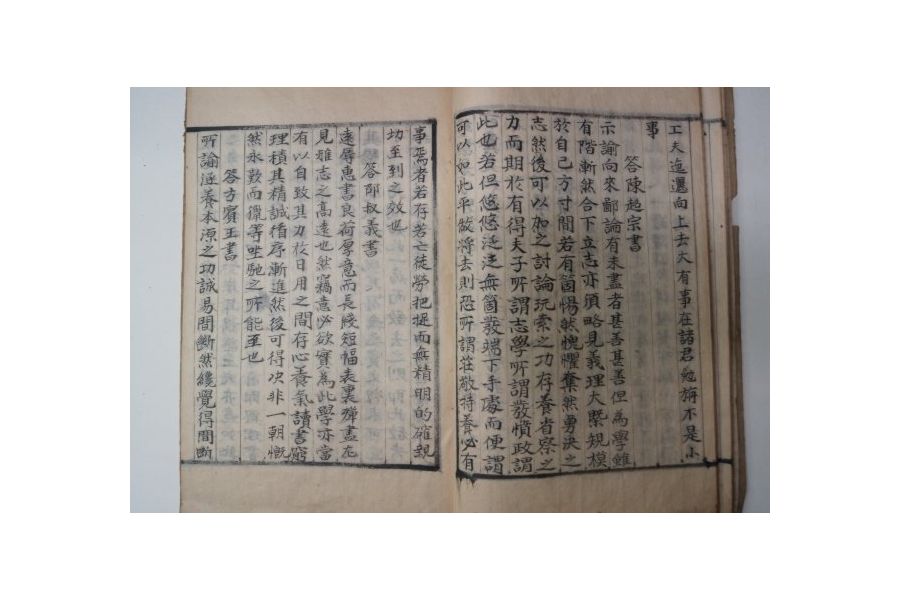 工夫迤邐向上去大有事在諸君勉旃不是小
事
答陳超宗書
示諭向來鄙論有未盡者甚善甚善但為學雖
有階漸然合下立志亦須略見義理大槩規模
於自己方寸間若有箇惕然愧懼奮然勇決之
志然後可以加之討論玩索之功存養省察之
力而期於有得夫子所謂志學所謂發憤政謂
此也若但悠悠泛泛無箇發端下手處而便謂
可以如此平做將去則恐所謂莊敬持養必有
事焉者若存若亡徒勞把捉而無精明的確親
切至到之效也
答邵叔義書
遠辱惠書良荷厚意而長牋短幅表裏殫盡左
見雅志之高遠也然竊意必欲實為此學亦當
有以自致其力於日用之間存心養氣讀書窮
理積其精誠循序漸進然後可得决非一朝慨
然永歎而躐等坐馳之所能至也
答方賓王書
所論涵養本源之功誠易間斷然纔覺得間斷